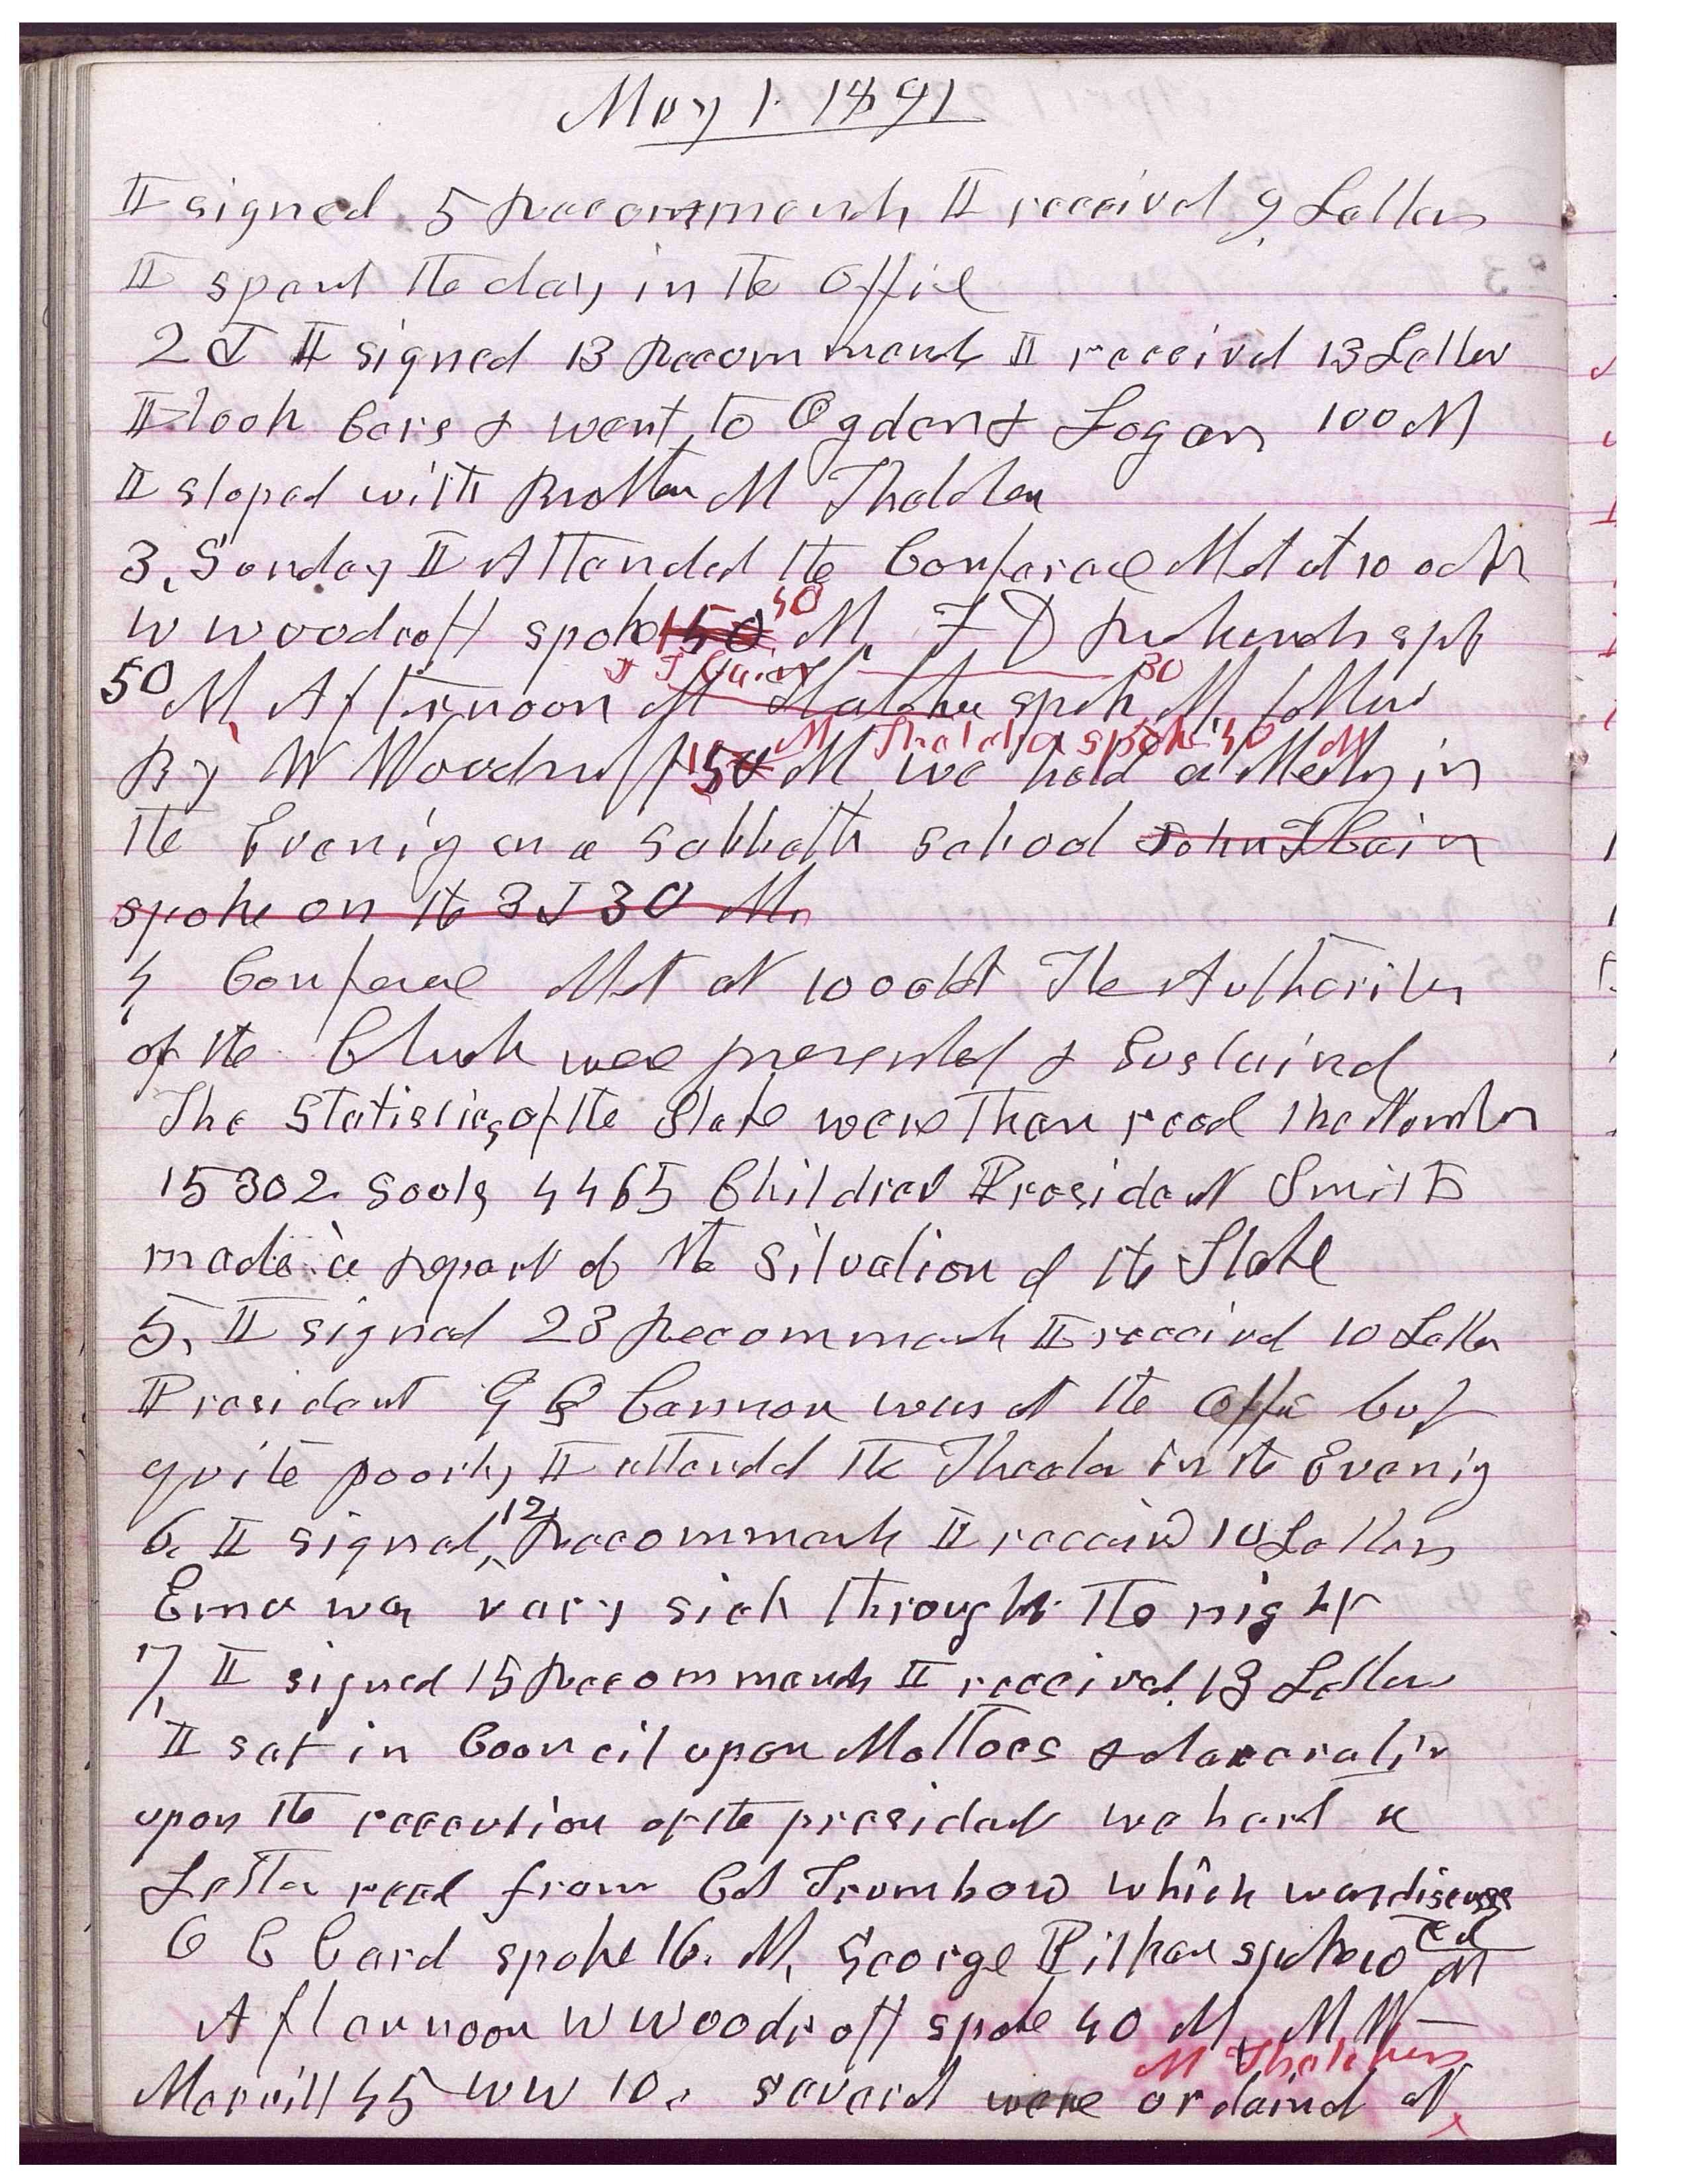 May 1. 1891
I signed 5 Recommends I received 9 Letters
I spent the day in the Office
2d I signed 13 Recommends I received 13 Letters
I took Cars & went to Ogden & Logan 100 M
I stoped with Brother M Thatcher
3, Sunday I Attended the Conferace Met at 10 oclk
W Woodruff spoke 150 40 M, F D Richards spk
50 M, Afternoon M Thatcher J T Cain spok 30 M followed
M Thatcher spoke 40 M
By W Woodruff 15 M we held a Meeting in
the Evenig on a Sabbath School John T Cain
spoke on the 3d 30 M.
4 Conferae Met at 10 oclk The Authorities
of the Church were presented & Sustaind
The Statistics of the Stake were then read the Number
15302 Souls 4465 Children President Smith
made a report of the situation of the Stake
5, I signed 23 Recommends I received 10 Letters
President G Q Cannon was at the Office but
quite poorly I attended the Theater in the Evenig
6. I signed 12 Recommends I receivd 10 Letters
Emma was vary sick through the night
7, I signed 15 Recommends I received 13 Letters
I sat in Council upon Mottoes & decorating
upon the reception of the president we heard a
Letter read from Col Trumbow which was discussed
C O Card spoke 16. M, George Pitkin spoke 10 M
Afternoon W Woodruff spoke 40 M, M W
Merrill 45 WW 10. several were ordaind at M Thatchers